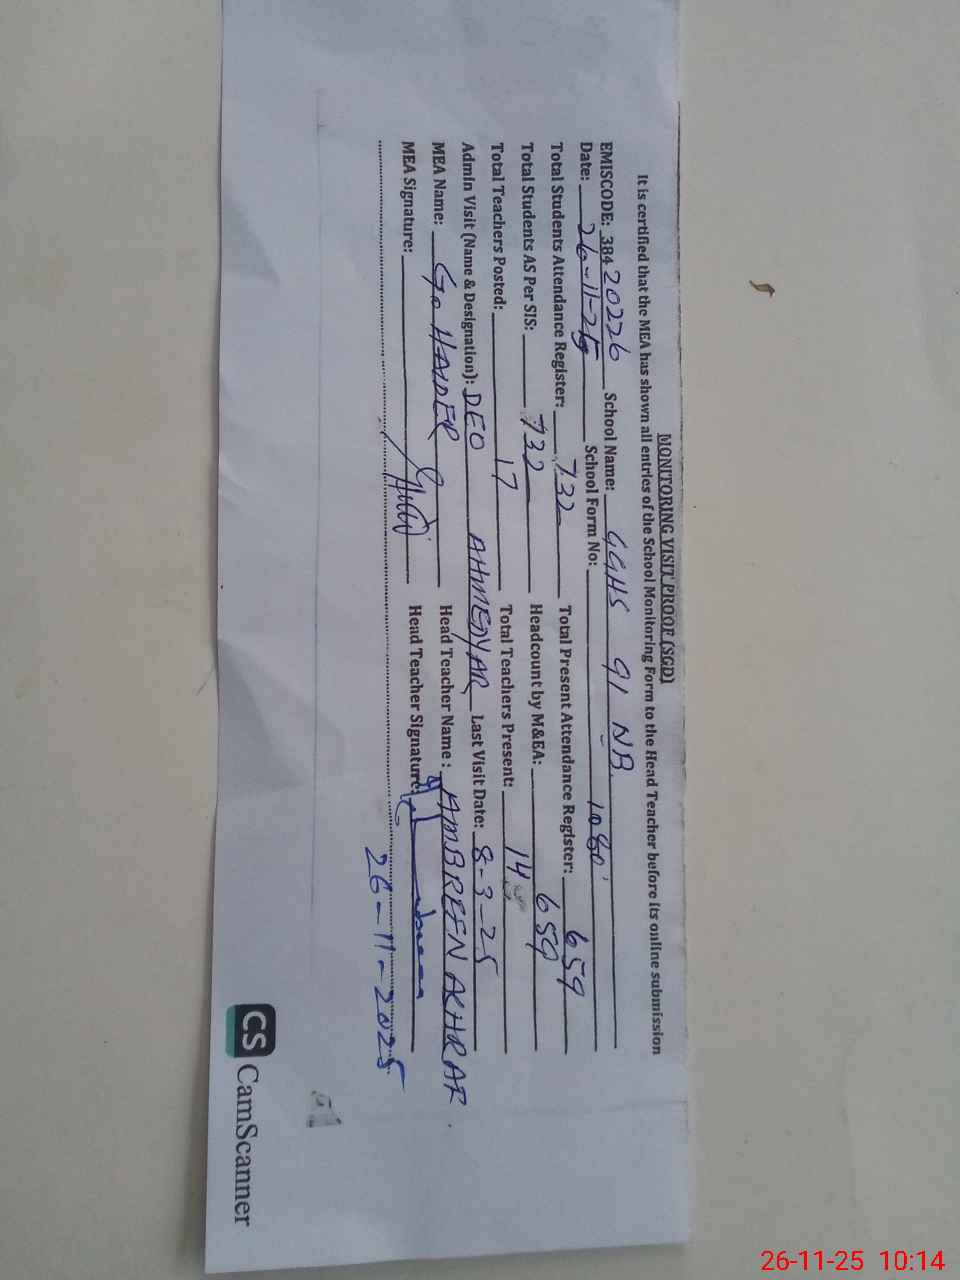 MONITORING VISIT PROOF (SGD)
It is certified that the MEA has shown all entries of the School Monitoring Form to the Head Teacher before its online submission
EMISCODE: 38420226 School Name: GGHS 91 NB
Date: 26-11-25 School Form No: 1080
Total Students Attendance Register: 732 Total Present Attendance Register: 659
Total Students AS Per SIS: 732 Headcount by M&EA: 659
Total Teachers Posted: 17 Total Teachers Present: 14
Admin Visit (Name & Designation): DEO AHMEDYAR Last Visit Date: 8-3-25
MEA Name: G. HAIDER Head Teacher Name: AMBREEN AKHRAR
MEA Signature: Head Teacher Signature:
26-11-2025
CS CamScanner
26-11-25 10:14